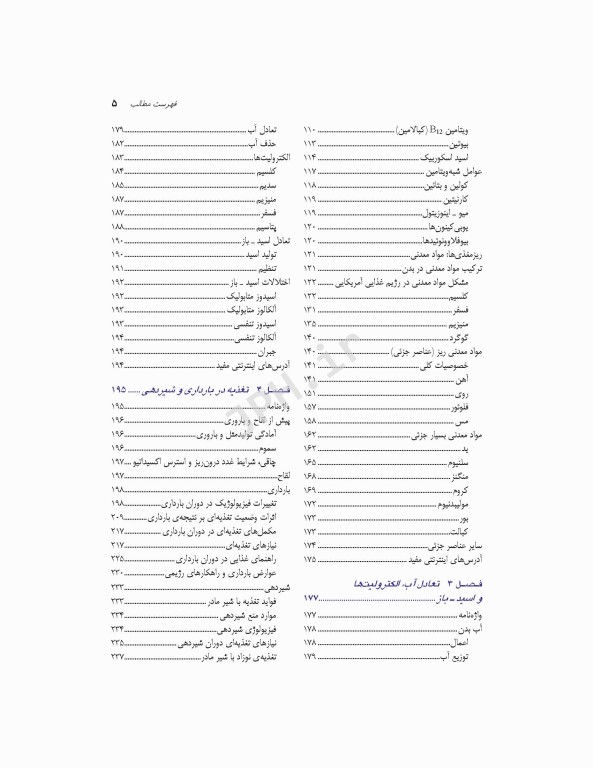 فهرست مطالب ۵
ویتامین B12 (کبالامین) ۱۱۰
بیوتین ۱۱۳
اسید اسکوربیک ۱۱۴
عوامل شبه‌ویتامین ۱۱۷
کولین و بتائین ۱۱۸
کارنیتین ۱۱۹
میو ـ اینوزیتول ۱۱۹
یوبی‌کینون‌ها ۱۲۰
بیوفلاوونوئیدها ۱۲۰
ریزمغذی‌ها: مواد معدنی ۱۲۱
ترکیب مواد معدنی در بدن ۱۲۱
مشکل مواد معدنی در رژیم غذایی آمریکایی ۱۲۲
کلسیم ۱۲۲
فسفر ۱۳۱
منیزیم ۱۳۵
گوگرد ۱۴۰
مواد معدنی ریز (عناصر جزئی) ۱۴۰
خصوصیات کلی ۱۴۱
آهن ۱۴۱
روی ۱۵۱
فلوئور ۱۵۷
مس ۱۵۸
مواد معدنی بسیار جزئی ۱۶۲
ید ۱۶۲
سلنیوم ۱۶۵
منگنز ۱۶۸
کروم ۱۶۹
مولیبدنیوم ۱۷۲
بور ۱۷۳
کبالت ۱۷۳
سایر عناصر جزئی ۱۷۴
آدرس‌های اینترنتی مفید ۱۷۵
فـصـــل ۳ تعادل آب، الکترولیت‌ها
و اسید ـ باز ۱۷۷
واژه‌نامه ۱۷۷
آب بدن ۱۷۸
اعمال ۱۷۸
توزیع آب ۱۷۹
تعادل آب ۱۷۹
حذف آب ۱۸۲
الکترولیت‌ها ۱۸۳
کلسیم ۱۸۴
سدیم ۱۸۵
منیزیم ۱۸۷
فسفر ۱۸۷
پتاسیم ۱۸۸
تعادل اسید ـ باز ۱۹۰
تولید اسید ۱۹۰
تنظیم ۱۹۱
اختلالات اسید ـ باز ۱۹۲
اسیدوز متابولیک ۱۹۲
آلکالوز متابولیک ۱۹۳
اسیدوز تنفسی ۱۹۳
آلکالوز تنفسی ۱۹۴
جبران ۱۹۴
آدرس‌های اینترنتی مفید ۱۹۴
فـصـــل ۴ تغذیه در بارداری و شیردهی ۱۹۵
واژه‌نامه ۱۹۵
پیش از لقاح و باروری ۱۹۶
آمادگی تولیدمثل و باروری ۱۹۶
سموم ۱۹۶
چاقی، شرایط غدد درون‌ریز و استرس اکسیداتیو ۱۹۷
لقاح ۱۹۷
بارداری ۱۹۸
تغییرات فیزیولوژیک در دوران بارداری ۱۹۸
اثرات وضعیت تغذیه‌ای بر نتیجه‌ی بارداری ۲۰۹
مکمل‌های تغذیه‌ای در دوران بارداری ۲۱۷
نیازهای تغذیه‌ای ۲۱۷
راهنمای غذایی در دوران بارداری ۲۲۵
عوارض بارداری و راهکارهای رژیمی ۲۳۰
شیردهی ۲۳۳
فواید تغذیه با شیر مادر ۲۳۳
موارد منع شیردهی ۲۳۴
فیزیولوژی شیردهی ۲۳۴
نیازهای تغذیه‌ای دوران شیردهی ۲۳۵
تغذیه‌ی نوزاد با شیر مادر ۲۳۷
JPH.ir